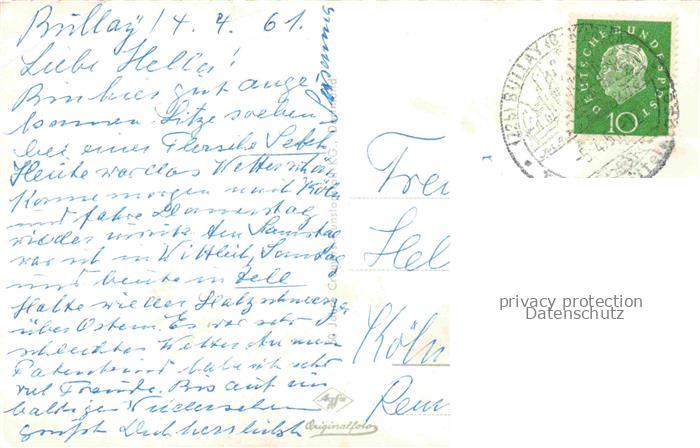 Bullay, 4. 4. 61.
Liebe Hella!
Bin hier gut ange-
kommen. Sitze soeben
bei einer Flasche Sekt
Heute war das Wetter schön
Komme morgen nach Köln
und fahre Donnerstag
wieder zurück. Am Samstag
war ich in Wittlich, Sonntag
und heute in Zell
Hatte wieder Halsschmerzen
über Ostern. Es war sehr
schlechtes Wetter. An mein
Patenkind habe ich sehr
viel Freude. Bis auf ein
baldiges Wiedersehen
grüßt Dich herzlichst
Frei
Hel
Köln
Rem
DEUTSCHE BUNDESPOST
10
BULLAY
privacy protection
Datenschutz
Agfa
Originalfoto